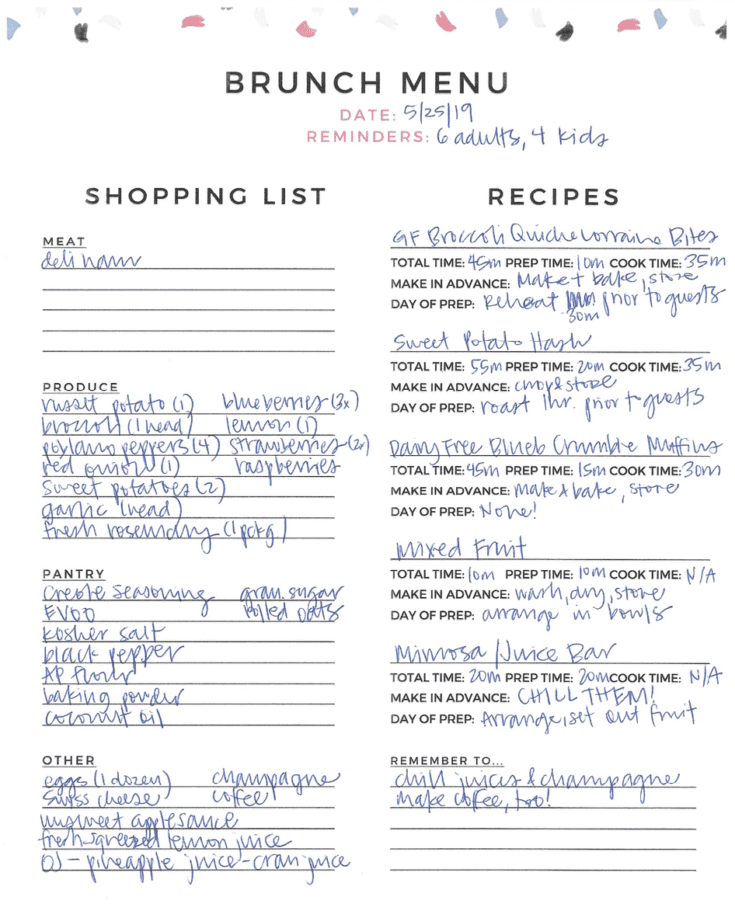 BRUNCH MENU
DATE: 5/25/19
REMINDERS: 6 adults, 4 kids
SHOPPING LIST
MEAT
deli ham
PRODUCE
russet potato (1) blueberries (3x)
broccoli (1 head) lemon (1)
poblano peppers (4) strawberries (2x)
red onion (1) raspberries
sweet potatoes (2)
garlic (head)
fresh rosemary (1 pckg)
PANTRY
creole seasoning gran. sugar
EVOO rolled oats
kosher salt
black pepper
AP flour
baking powder
coconut oil
OTHER
eggs (1 dozen) champagne
swiss cheese coffee
unsweet applesauce
fresh-squeezed lemon juice
OJ - pineapple juice - cran juice
RECIPES
GF Broccoli Quiche Lorraine Bites
TOTAL TIME: 45m PREP TIME: 10m COOK TIME: 35m
MAKE IN ADVANCE: Make + bake, store
DAY OF PREP: Reheat 30m prior to guests
Sweet Potato Hash
TOTAL TIME: 55m PREP TIME: 20m COOK TIME: 35m
MAKE IN ADVANCE: chop & store
DAY OF PREP: roast 1hr. prior to guests
Dairy Free Blueb Crumble Muffins
TOTAL TIME: 45m PREP TIME: 15m COOK TIME: 30m
MAKE IN ADVANCE: make & bake, store
DAY OF PREP: None!
Mixed Fruit
TOTAL TIME: 10m PREP TIME: 10m COOK TIME: N/A
MAKE IN ADVANCE: wash, dry, store
DAY OF PREP: arrange in bowls
Mimosa/Juice Bar
TOTAL TIME: 20m PREP TIME: 20m COOK TIME: N/A
MAKE IN ADVANCE: CHILL THEM!
DAY OF PREP: Arrange, set out fruit
REMEMBER TO...
chill juices & champagne
make coffee, too!